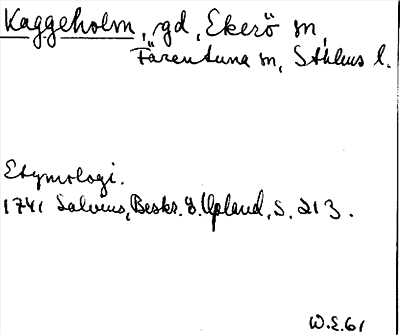 Kaggeholm, gd, Ekerö sn,
Färentuna sn, Sthlms l.
Etymologi.
1741 Salvius, Beskr. ö. Upland, s. 213.
W.E. 61